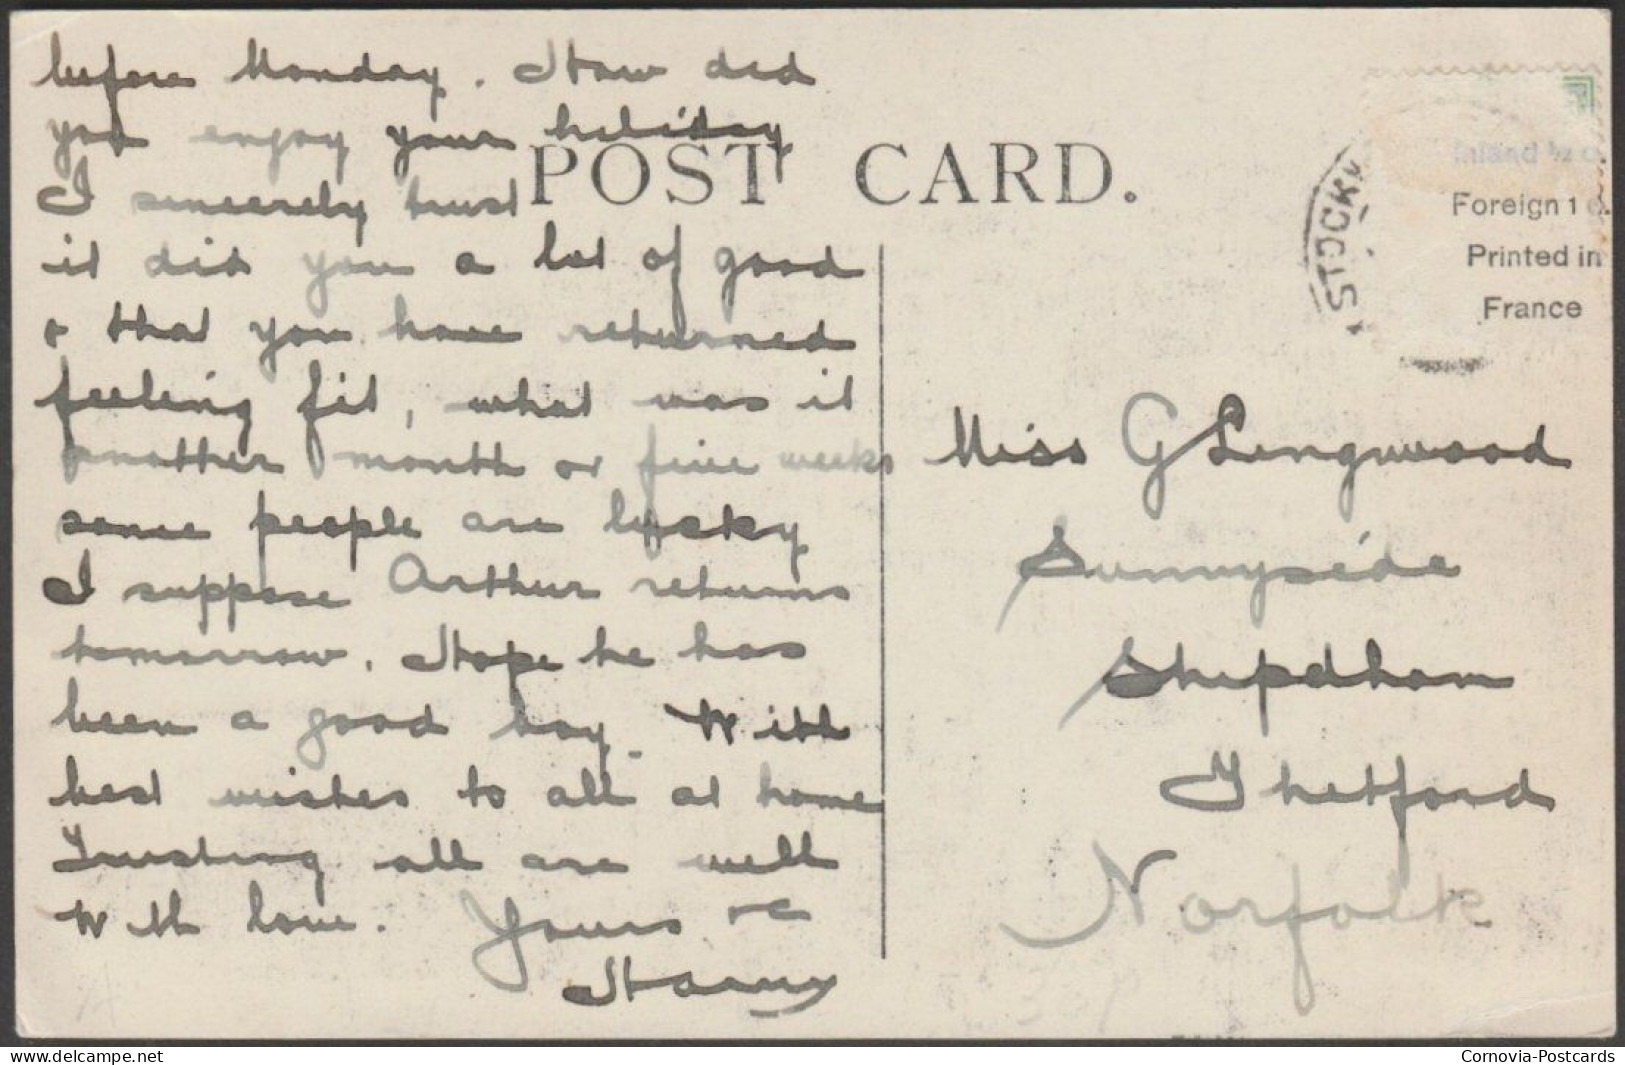 before Monday. How did
you enjoy your holiday
I sincerely trust
it did you a lot of good
& that you have returned
feeling fit, what was it
another month or five weeks
some people are lucky
I suppose Arthur returns
tomorrow. Hope he has
been a good boy. With
best wishes to all at home
Trusting all are well
With love. Yours &c
Harry
POST CARD.
Inland ½ d.
Foreign 1 d.
Printed in
France
STOCK
Miss G Lingwood
Sunnyside
Shipdham
Thetford
Norfolk
delcampe.net
Cornovia-Postcards